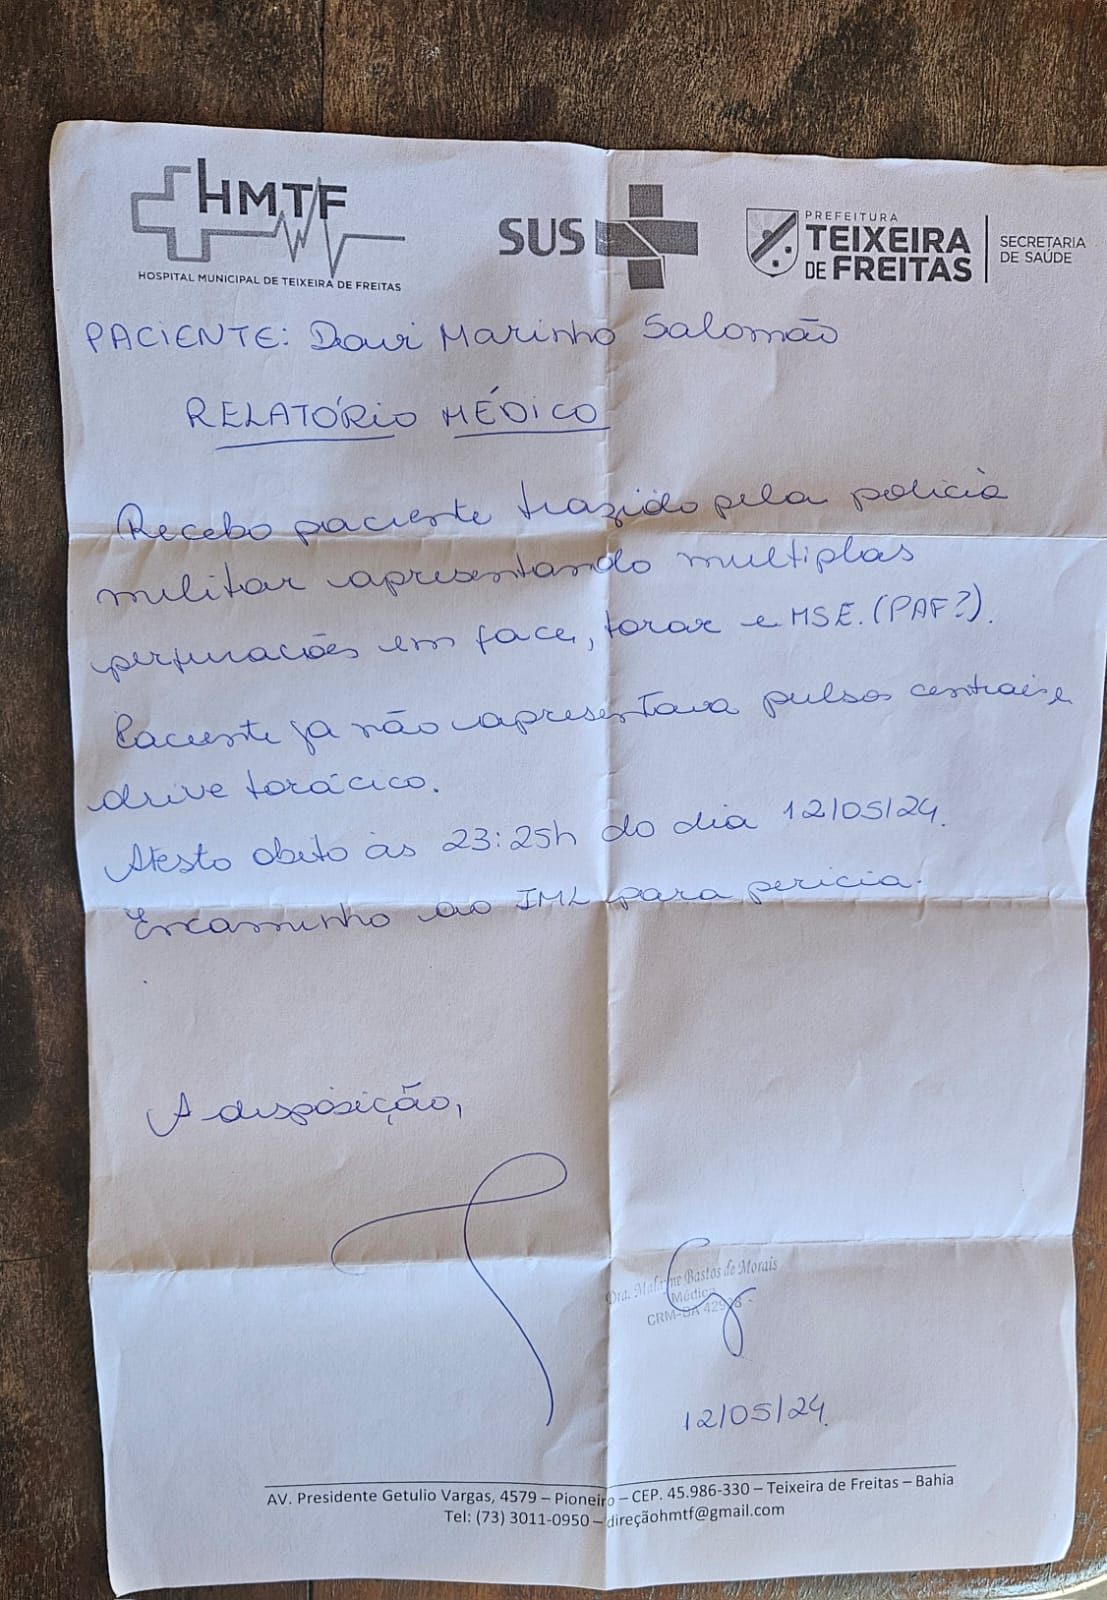 HMTF
HOSPITAL MUNICIPAL DE TEIXEIRA DE FREITAS
SUS
PREFEITURA
TEIXEIRA
DE FREITAS
SECRETARIA
DE SAÚDE
PACIENTE: Davi Marinho Salomão
RELATÓRIO MÉDICO
Recebo paciente trazido pela policia
militar apresentando multiplas
perfurações em face, torax e MSE. (PAF?).
Paciente ja não apresentava pulsos centrais e
drive torácico.
Atesto obito às 23:25h do dia 12/05/24.
Encaminho ao IML para pericia.
A disposição,
Dra. Bastos de Morais
Médica
CRM-BA
12/05/24.
AV. Presidente Getulio Vargas, 4579 – Pioneiro – CEP. 45.986-330 – Teixeira de Freitas – Bahia
Tel: (73) 3011-0950 – direçãohmtf@gmail.com